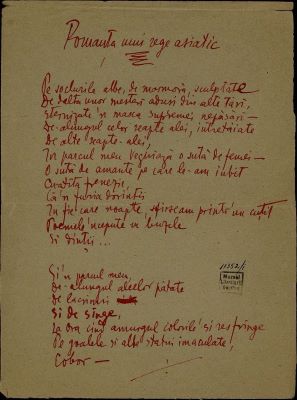 Romanta unui rege asiatic
Pe soclurile albe, de marmoră, sculptate
De dalta unor meșteri aduși din alte țări,
Eternizate 'n masca supremei nepăsări —
De-alungul celor șapte alei, întretăiate
De alte șapte-alei,
In parcul meu veghiază o sută de femei —
O sută de amante pe care le-am iubit
Cu
Ca 'n furia dorinții
In fie care noapte, printr'un cuțit
Poemele 'ncepute cu buzele
Și dinții...
Și 'n parcul meu,
De-alungul aleelor pătate
De lacrimi
Și de singe,
La ora cînd amurgul colorile și resfringe
Pe goalele și albe statui imaculate,
Cobor —
Muzeul